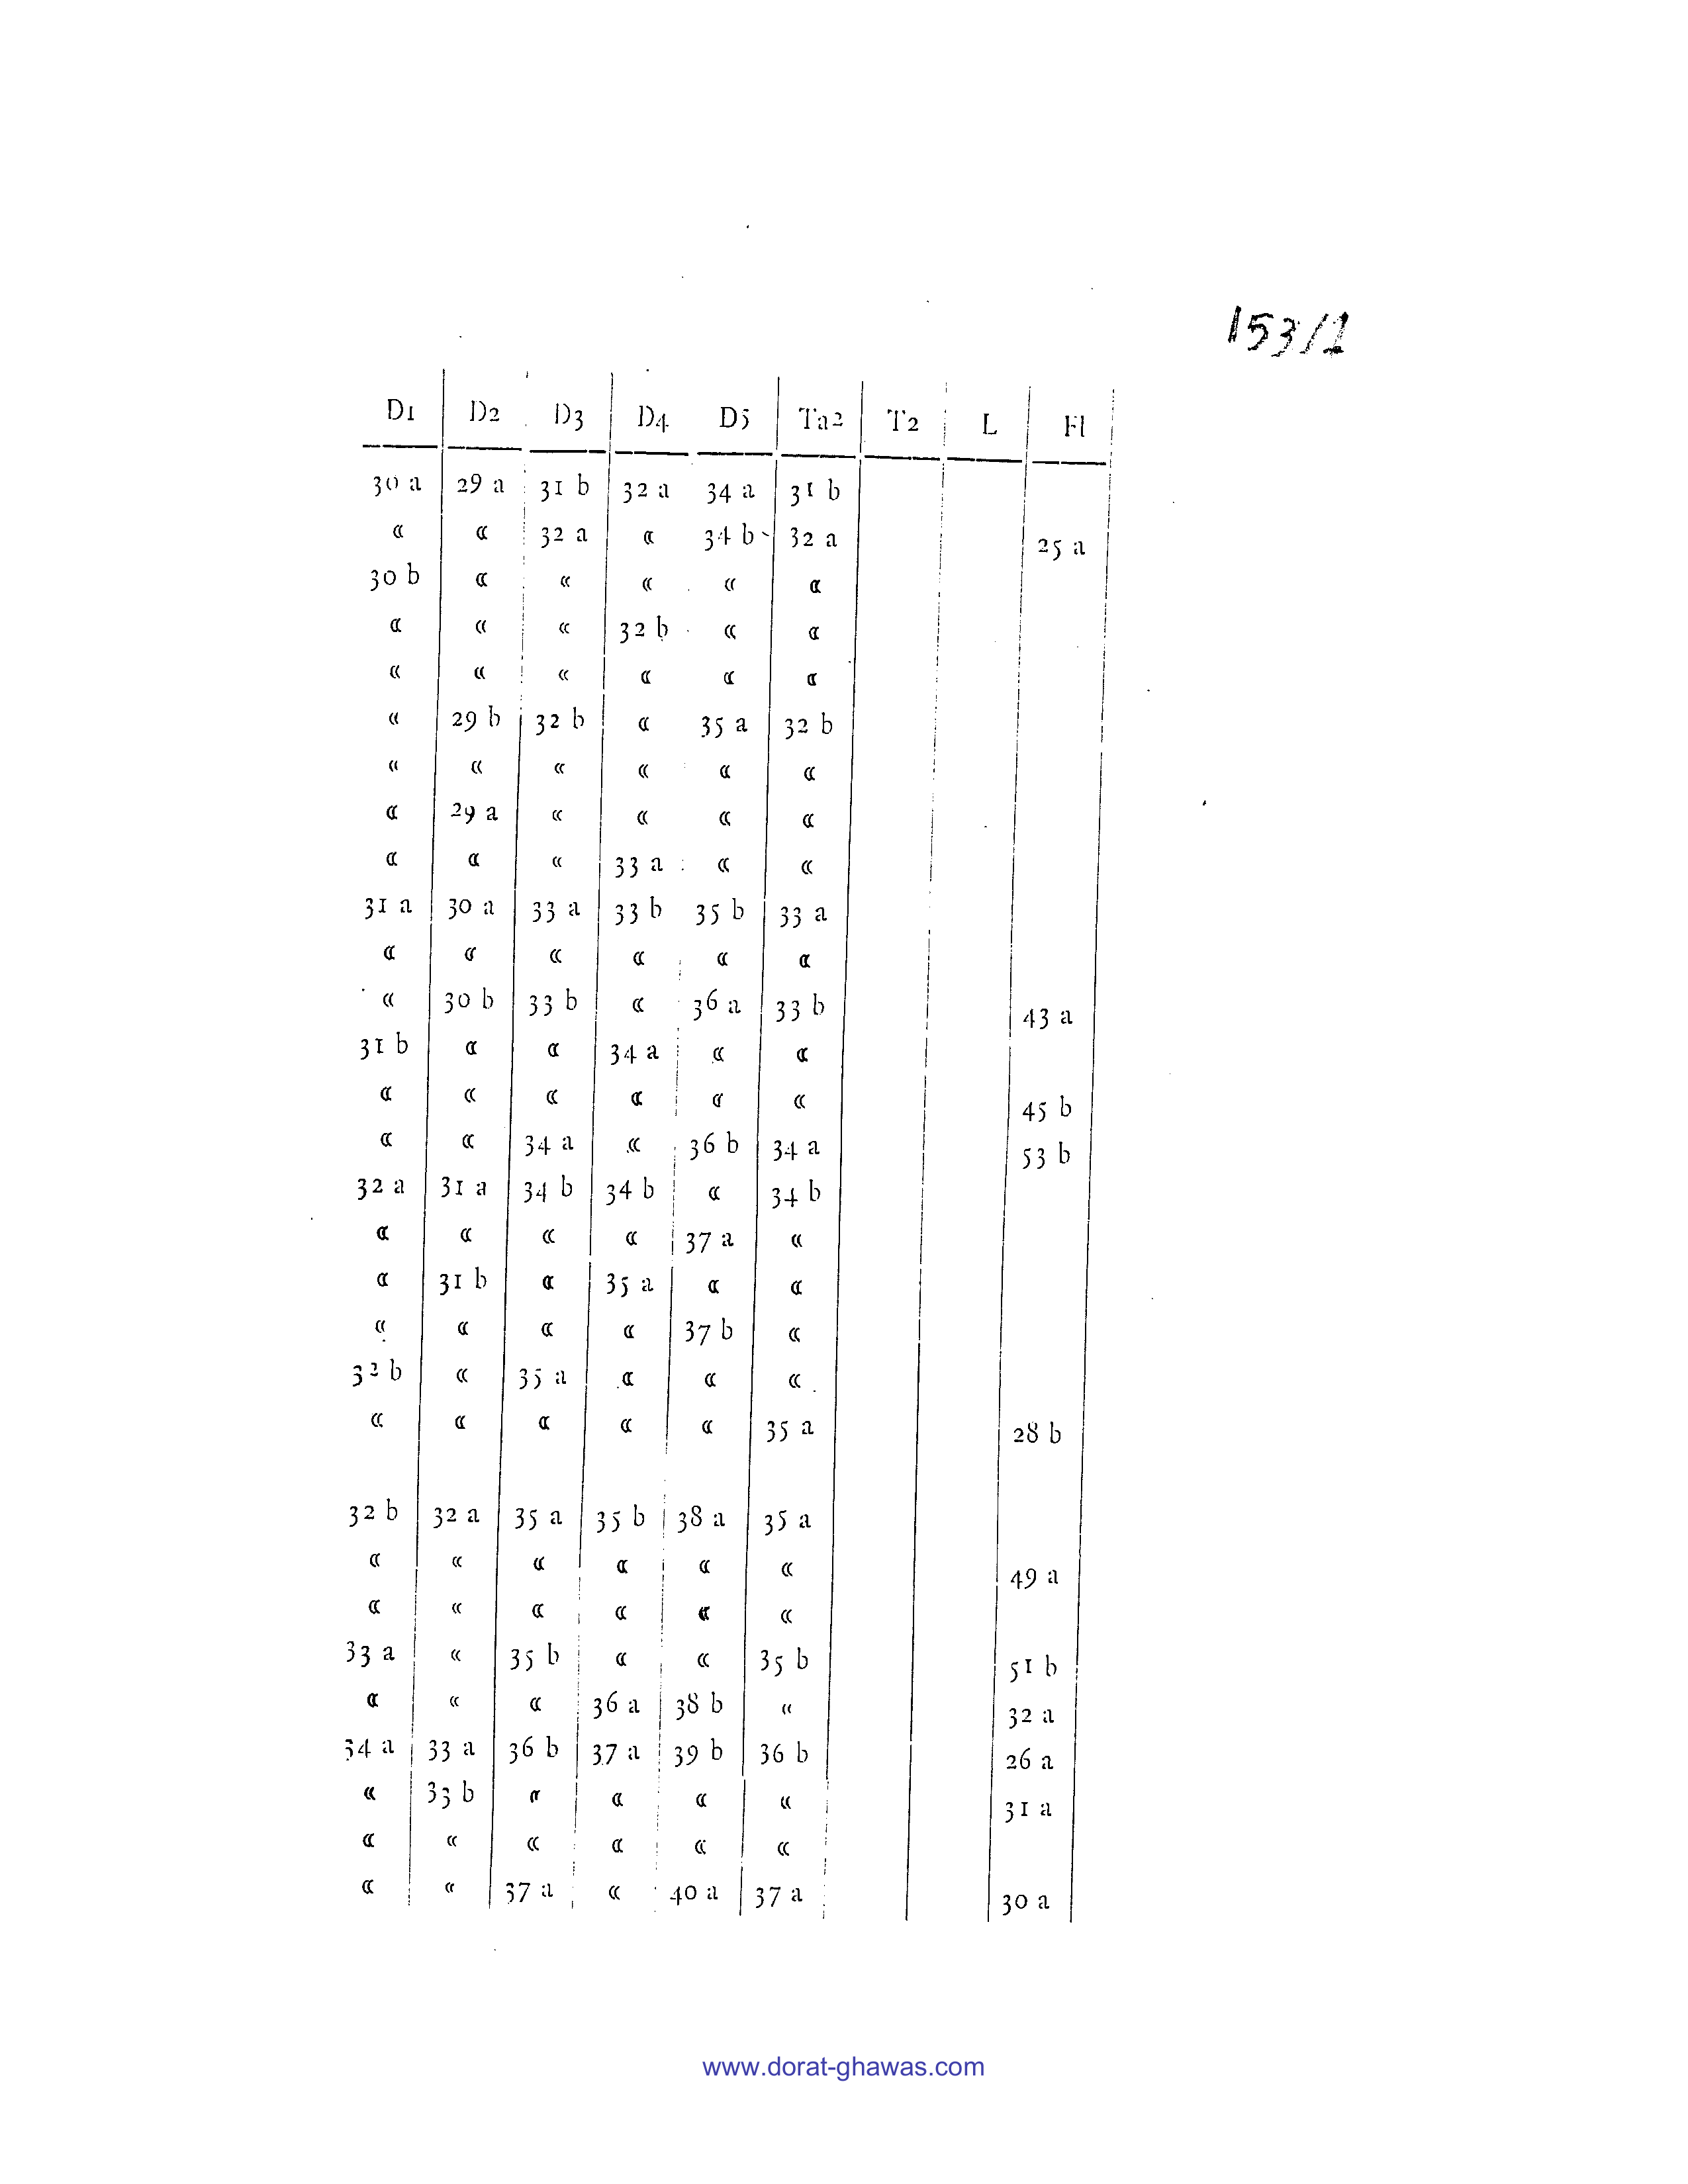 153/1
D1 D2 D3 D4 D5 Ta2 T2 L Fl
30 a 29 a 31 b 32 a 34 a 31 b
« « 32 a « 34 b 32 a 25 a
30 b « « « « «
« « « 32 b « «
« « « « « «
« 29 b 32 b « 35 a 32 b
« « « « « «
« 29 a « « « «
« « « 33 a « «
31 a 30 a 33 a 33 b 35 b 33 a
« « « « « «
« 30 b 33 b « 36 a 33 b 43 a
31 b « « 34 a « «
« « « « « « 45 b
« « 34 a « 36 b 34 a 53 b
32 a 31 a 34 b 34 b « 34 b
« « « « 37 a «
« 31 b « 35 a « «
« « « « 37 b «
32 b « 35 a « « «
« « « « « 35 a 28 b
32 b 32 a 35 a 35 b 38 a 35 a
« « « « « « 49 a
« « « « « «
33 a « 35 b « « 35 b 51 b
« « « 36 a 38 b « 32 a
34 a 33 a 36 b 37 a 39 b 36 b 26 a
« 33 b « « « « 31 a
« « « « « «
« « 37 a « 40 a 37 a 30 a
www.dorat-ghawas.com